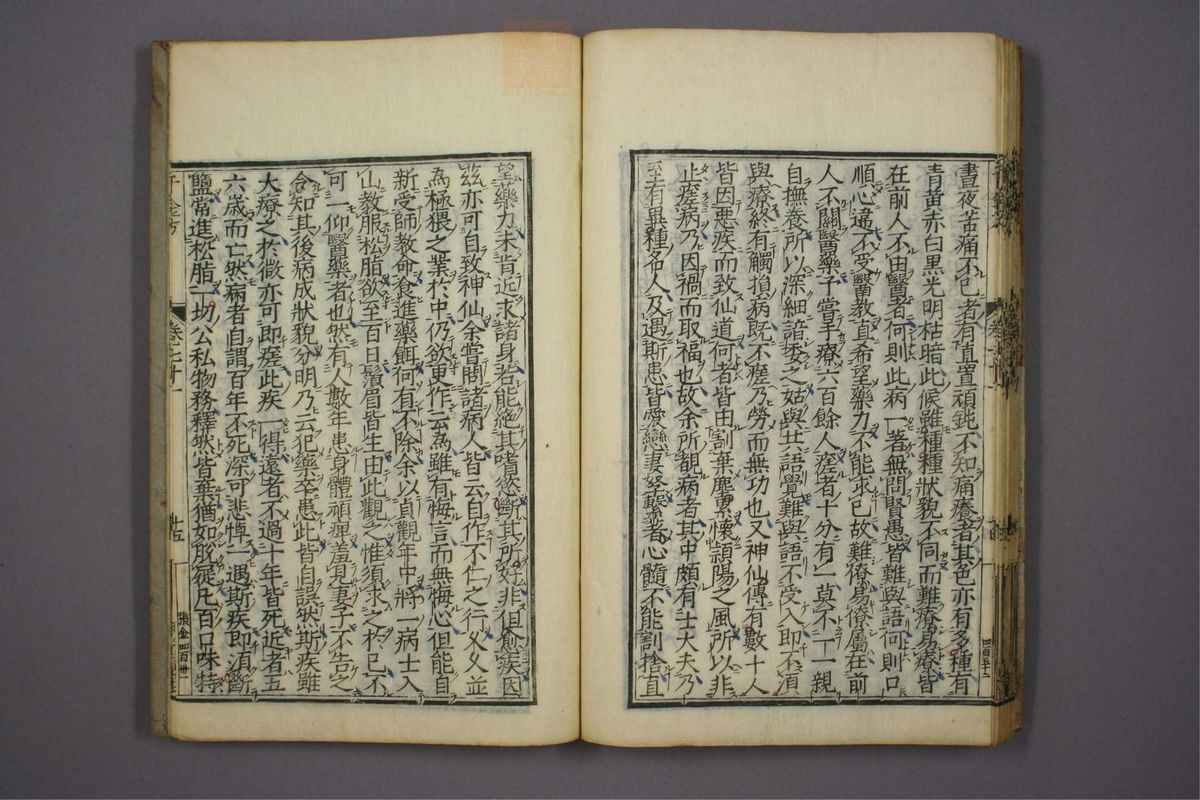 晝夜苦痛不已者有直置頑鈍不知痛癢者其色亦有多種有
青黃赤白黒光明枯暗此候雖種種狀貌不同而難療易療皆
在前人不由醫者何則此病一著無問賢愚皆難與語何則口
順心違不受醫教直希望藥力不能求己故難療易療屬在前
人不關醫藥予嘗手療六百餘人瘥者十分有一莫不一一親
自撫養所以深細諳委之姑與共語覺難與語不受入即不須
與療終有觸損病既不瘥乃勞而無功也又神仙傳有數十人
皆因惡疾而致仙道何者皆由割棄塵累懷頴陽之風所以非
止瘥病乃因禍而取福也故余所覩病者其中頗有士大夫乃
至有異種名人及遇斯患皆愛戀妻孥繫著心髓不能割捨直
望藥力未肯近求諸身若能絶其嗜慾斷其所好非但愈疾因
茲亦可自致神仙余嘗問諸病人皆云自作不仁之行久久並
為極猥之業於中仍欲更作云為雖有悔言而無悔心但能自
新受師教命食進藥餌何有不除余以貞觀年中將一病士入
山教服松脂欲至百日鬚眉皆生由此觀之惟須求之於己不
可一仰醫藥者也然有人數年患身體頑痺羞見妻子不告之
令知其後病成狀貌分明乃云犯藥卒患此皆自誤然斯疾雖
大療之於微亦可即瘥此疾一得遠者不過十年皆死近者五
六歲而亡然病者自謂百年不死深可悲悼一遇斯疾即須斷
鹽常進松脂一切公私物務釋然皆棄猶如脫屣凡百口味特
卷七十一
十五
張金四百卅
四百五十二